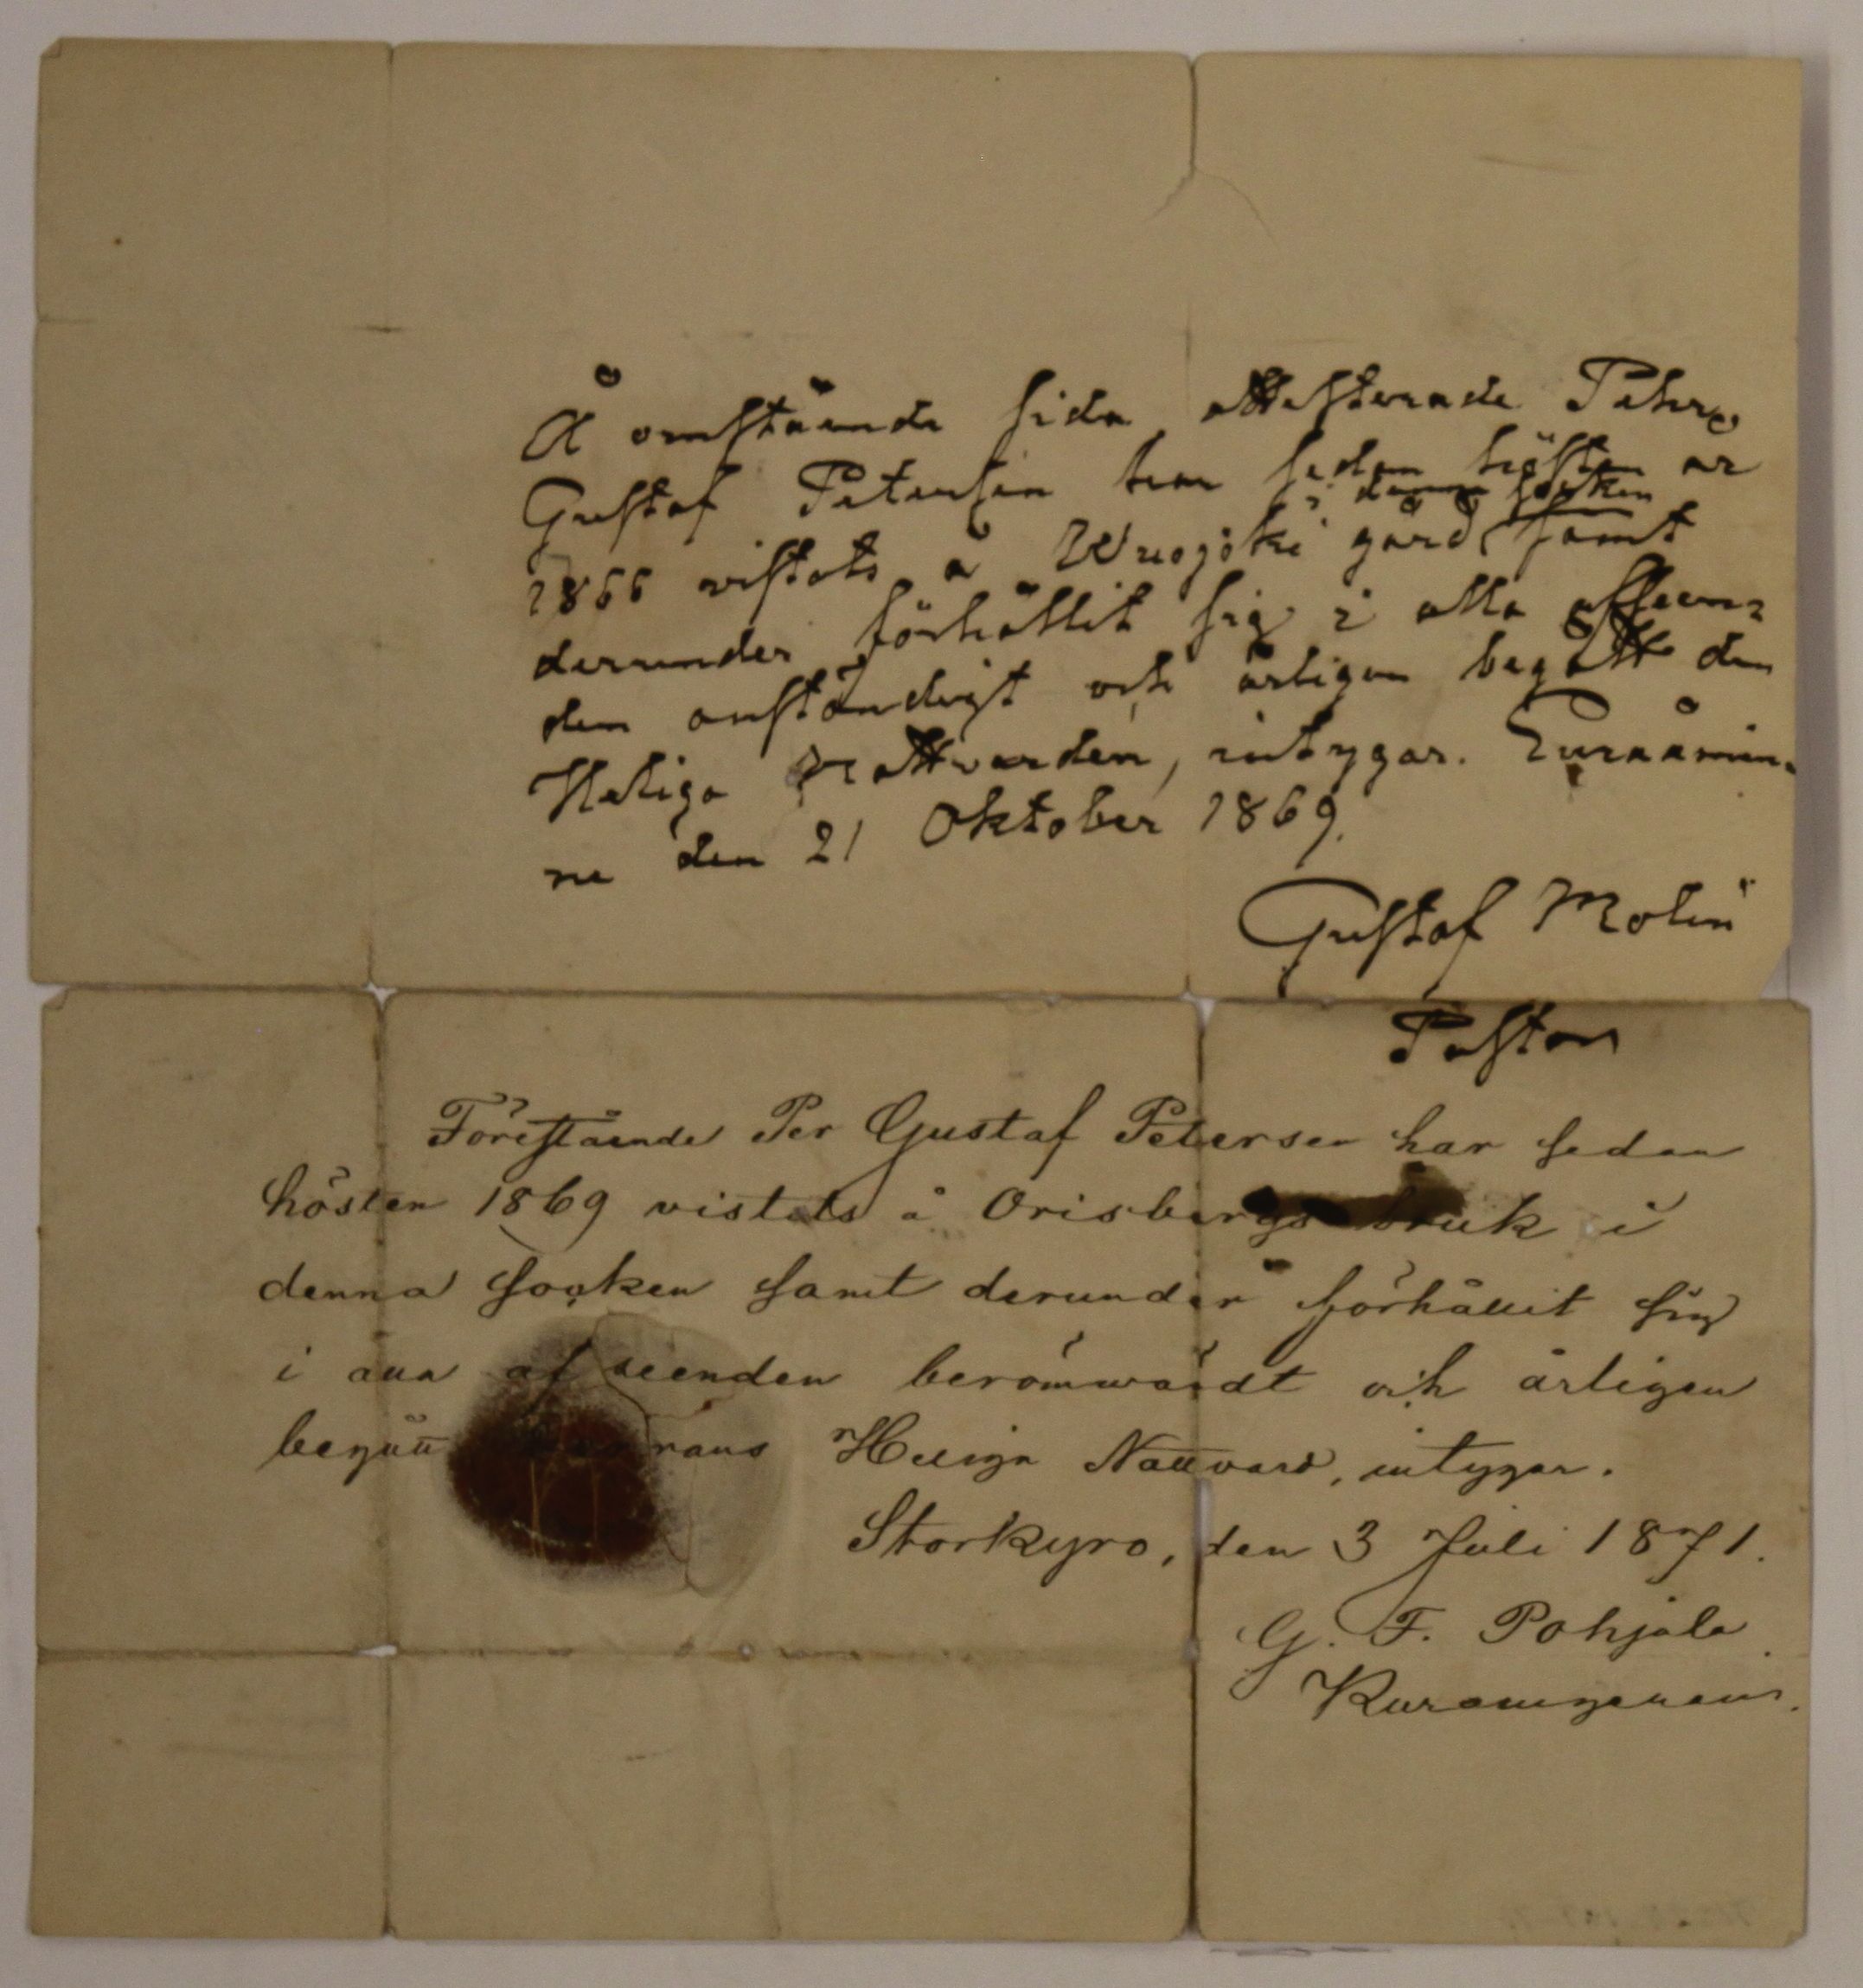 Å omstående sida attesterade Pehr
Gustaf Petersen har sedan hösten år
i denna socken
1866 vistats å Wuojoki gård samt
derunder förhållit sig i alla afseen=
den anständigt och årligen begått den
Heliga Nattvarden, intygar. Euraåmin=
ne den 21 Oktober 1869.
Gustaf Molin
Pastor
Förestående Per Gustaf Petersen har sedan
hösten 1869 vistats å Orisbergs bruk i
denna socken samt derunder förhållit sig
i alla afseenden berömwärdt och årligen
begått Herrans Heliga Nattvard, intygar.
Storkyro, den 3 Juli 1871.
G. F. Pohjala